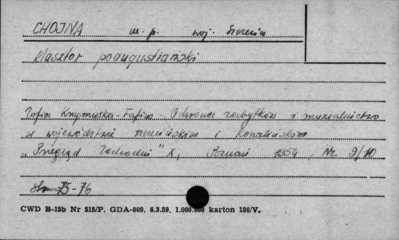 CHOJNA m. p. woj. Szczecin
klasztor poaugustiański
Zofia Krzymuska-Fafius Ochrona zabytków i muzealnictwo
w województwie szczecińskim i koszalińskim
„Przegląd Zachodni" X, Poznań 1954, Nr. 9/10
str. 75-76
CWD B-15b Nr 515/P. GDA-809. 6.3.59. 1.000.000 karton 180/V.